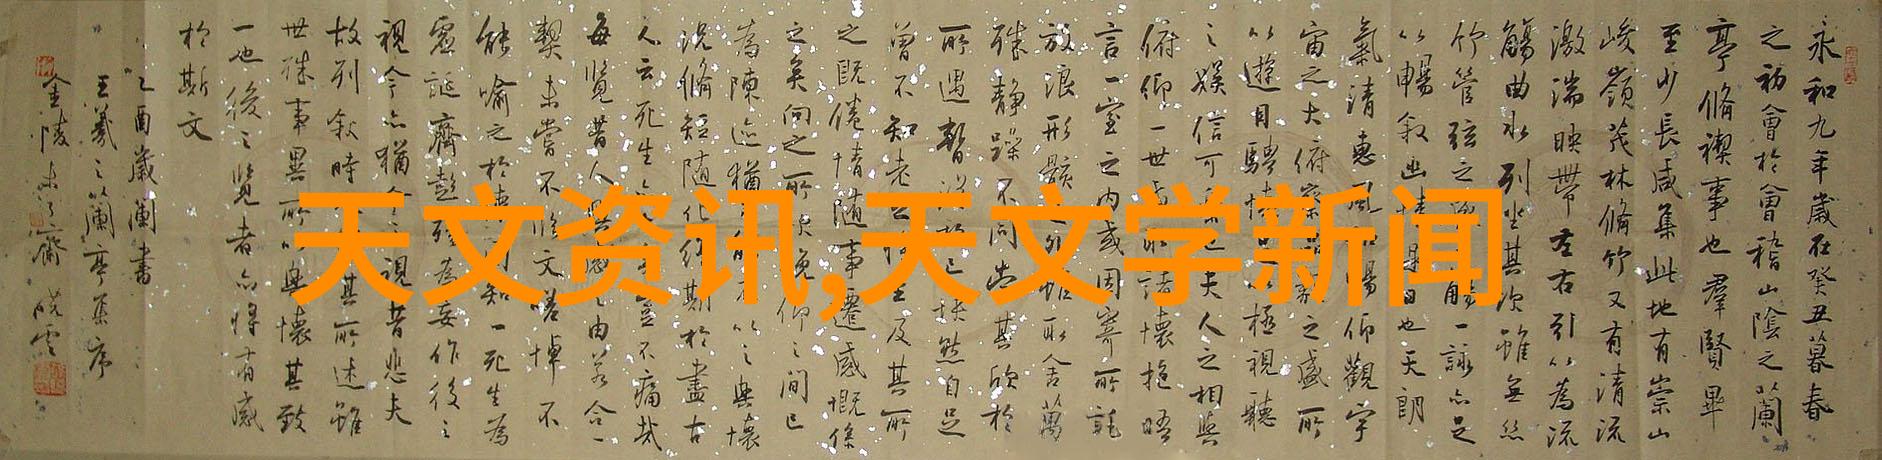 天文资讯,天文学新闻
永和九年歲在癸丑暮春
之初會於會稽山陰之蘭
亭脩禊事也羣賢畢
至少長咸集此地有崇山
峻嶺茂林脩竹又有清流
激湍映帶左右引以為流
觴曲水列坐其次雖無絲
竹管弦之盛一觴一詠亦足
以暢叙幽情是日也天朗
氣清惠風和暢仰觀宇
宙之大俯察品類之盛所
以遊目騁懷足以極視聽
之娛信可樂也夫人之相與
俯仰一世或取諸懷抱晤
言一室之內或因寄所託
放浪形骸之外雖取舍萬
殊靜躁不同當其欣於
所遇暫得於己快然自足
曾不知老之將至及其所
之既倦情隨事遷感慨係
之矣向之所欣俛仰之間已
為陳迹猶不能不以之興懷
況脩短隨化終期於盡古
人云死生亦大矣豈不痛哉
每覽昔人興感之由若合一
契未嘗不臨文嗟悼不
能喻之於懷固知一死生為
虛誕齊彭殤為妄作後之
視今亦猶今之視昔悲夫
故列叙時人錄其所述雖
世殊事異所以興懷其致
一也後之覽者亦將有感
於斯文
乙酉歲蘭書
王羲之蘭亭集序
金陵 齋